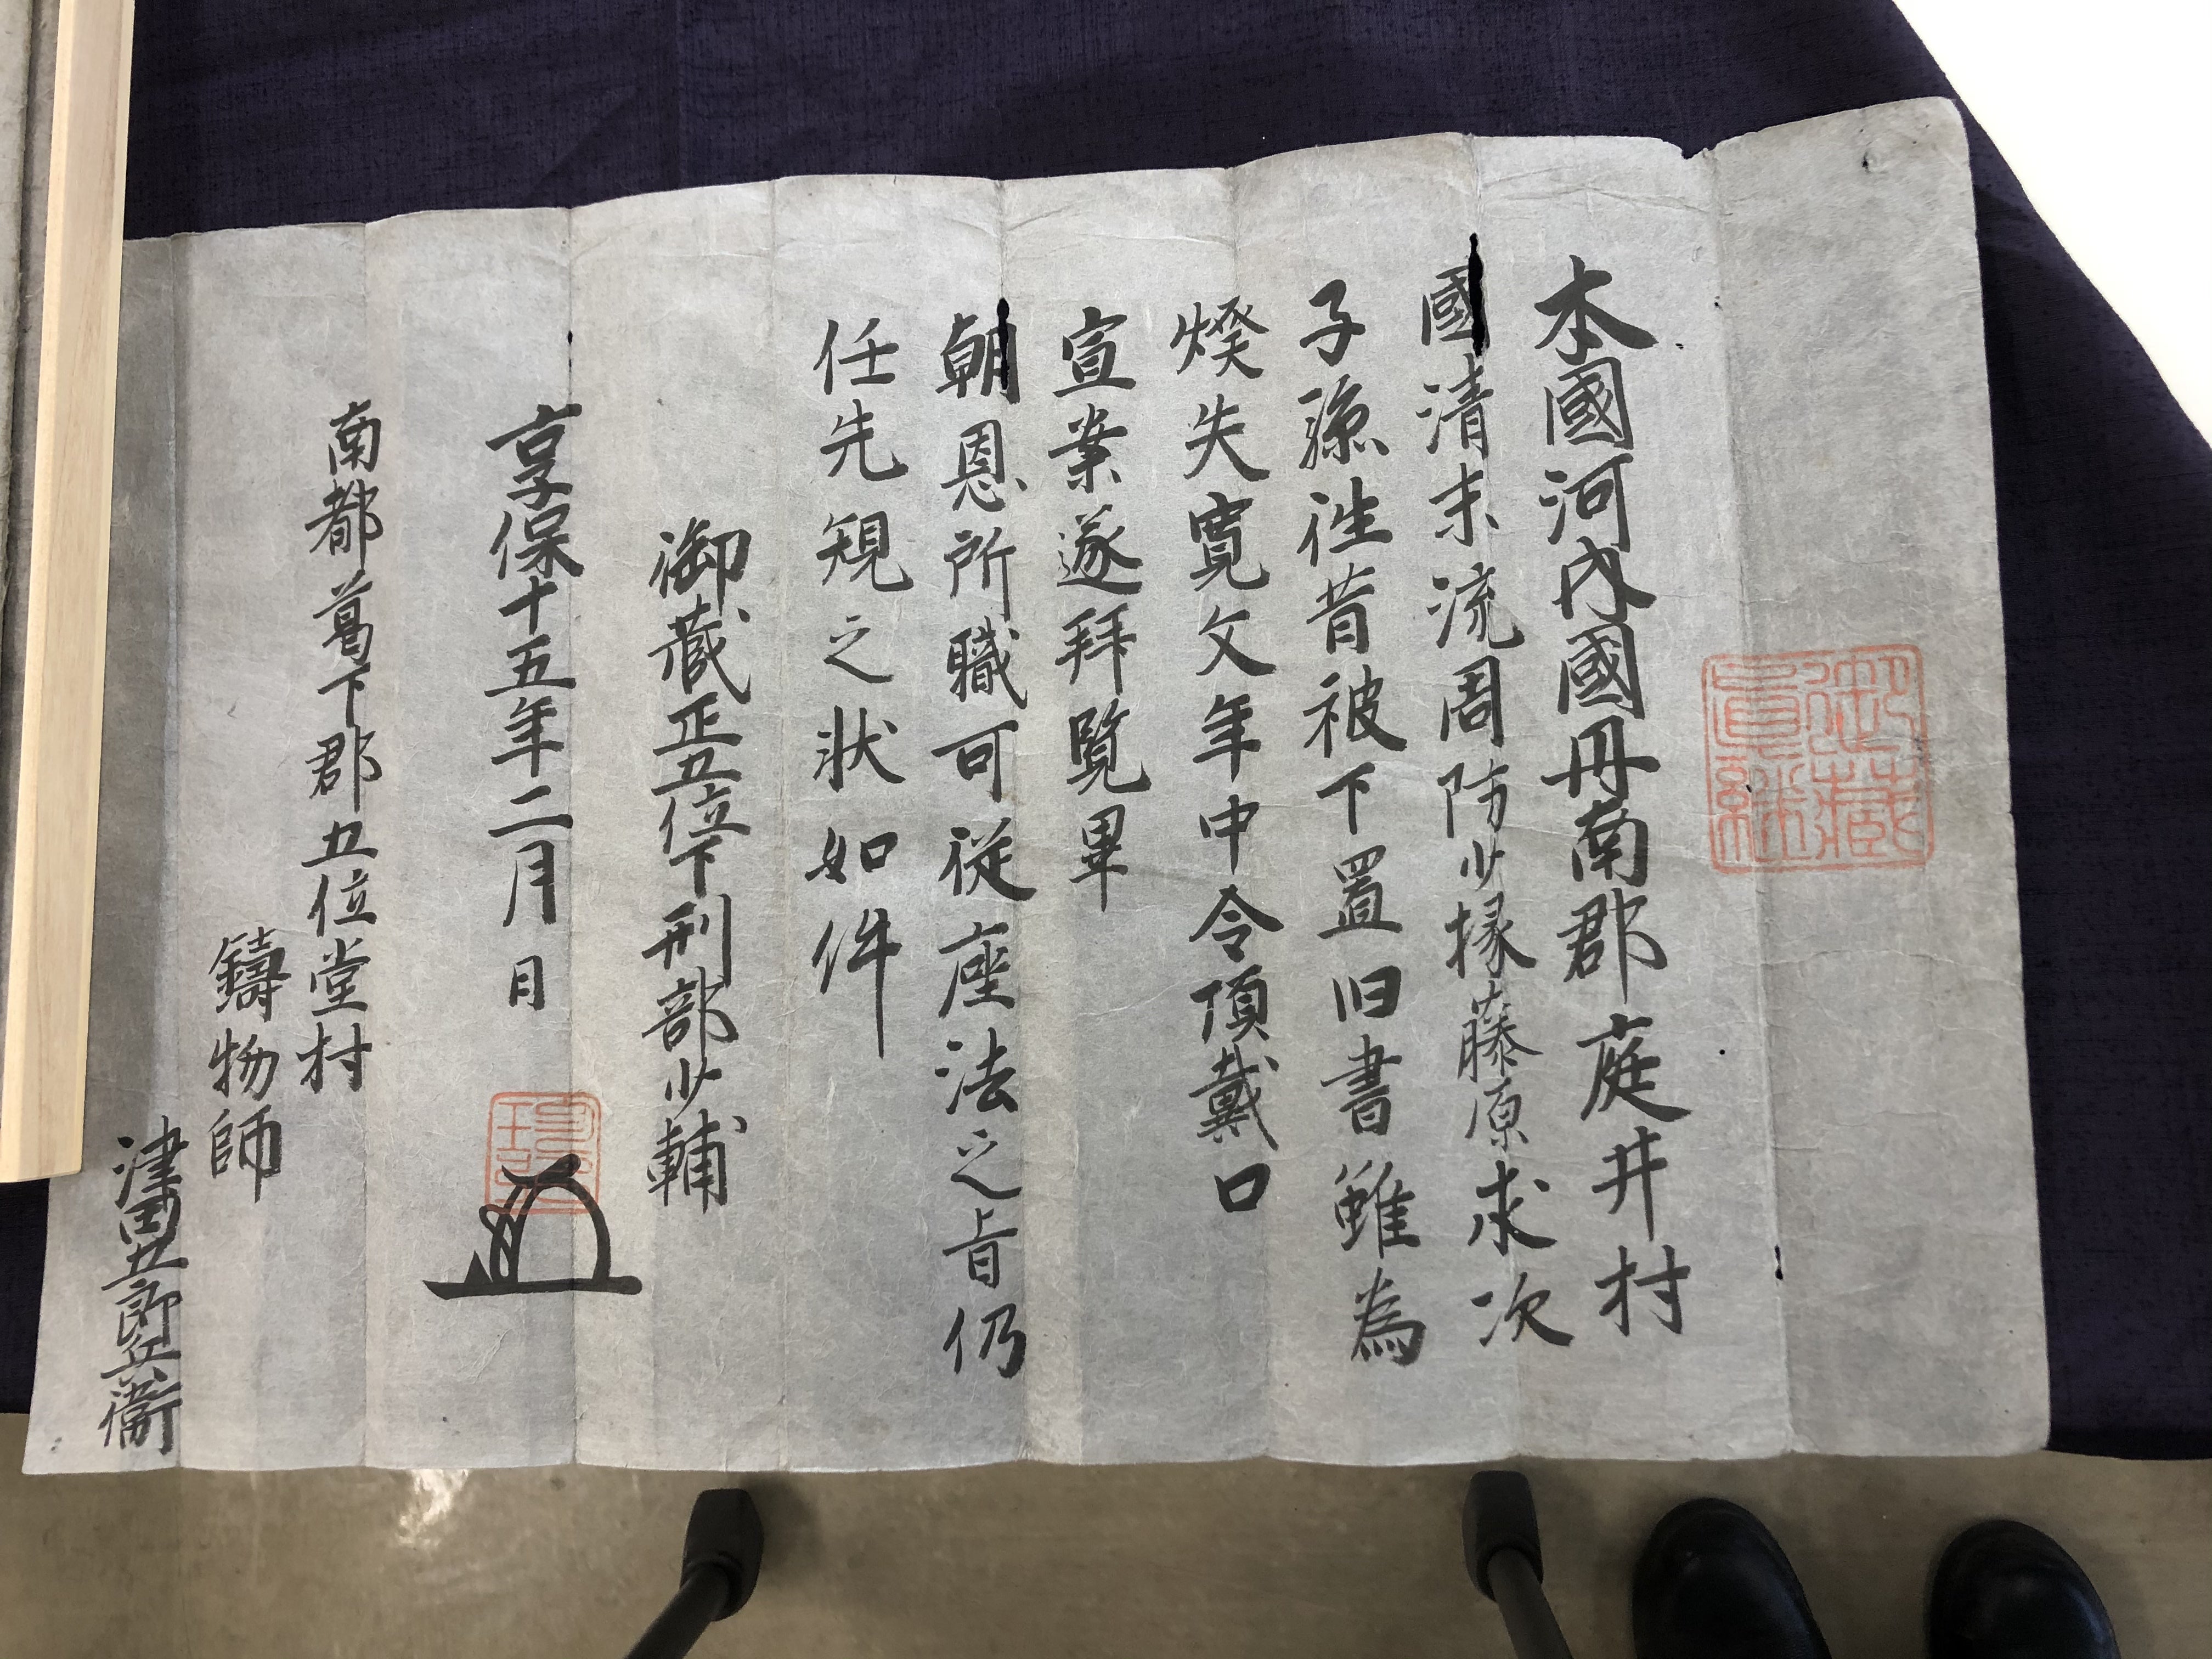 御藏
眞継
本國河内國丹南郡庭井村
國清末流周防少掾藤原求次
子孫徃昔被下置旧書雖為
燢失寛文年中令頂戴口
宣案遂拝覧畢
朝恩所職可従座法之旨仍
任先規之状如件
御蔵正五位下刑部少輔
享保十五年二月日
南都葛下郡五位堂村
鑄物師
津田五郎兵衛